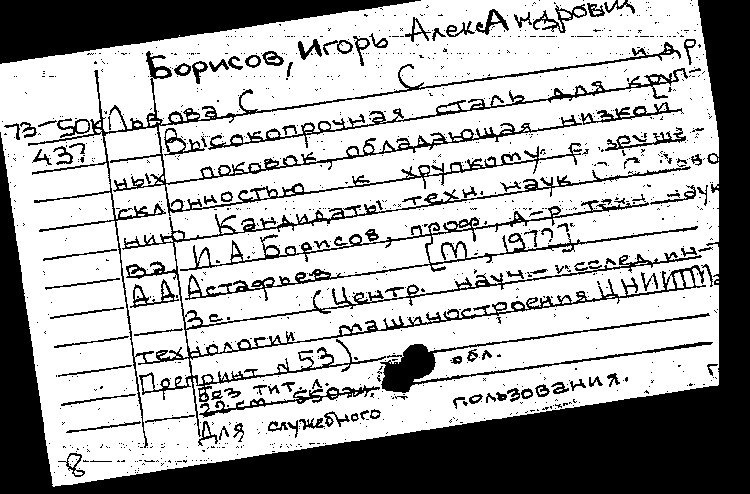 Борисов, Игорь Александрович
73-50к Львова, С С и др.
437 Высокопрочная сталь для круп-
ных поковок, обладающая низкой
склонностью к хрупкому
нию. Кандидаты техн. наук С.С.
ва, И.А. Борисов, проф., д-р техн наук
А.А Астафьев. [М., 1972].
3с. (Центр. науч.-исслед. ин-т
технологии машиностроения ЦНИИТМа
Препринт N 53).
Без тит. л. обл.
22 см 550 экз.
Для служебного пользования.
8